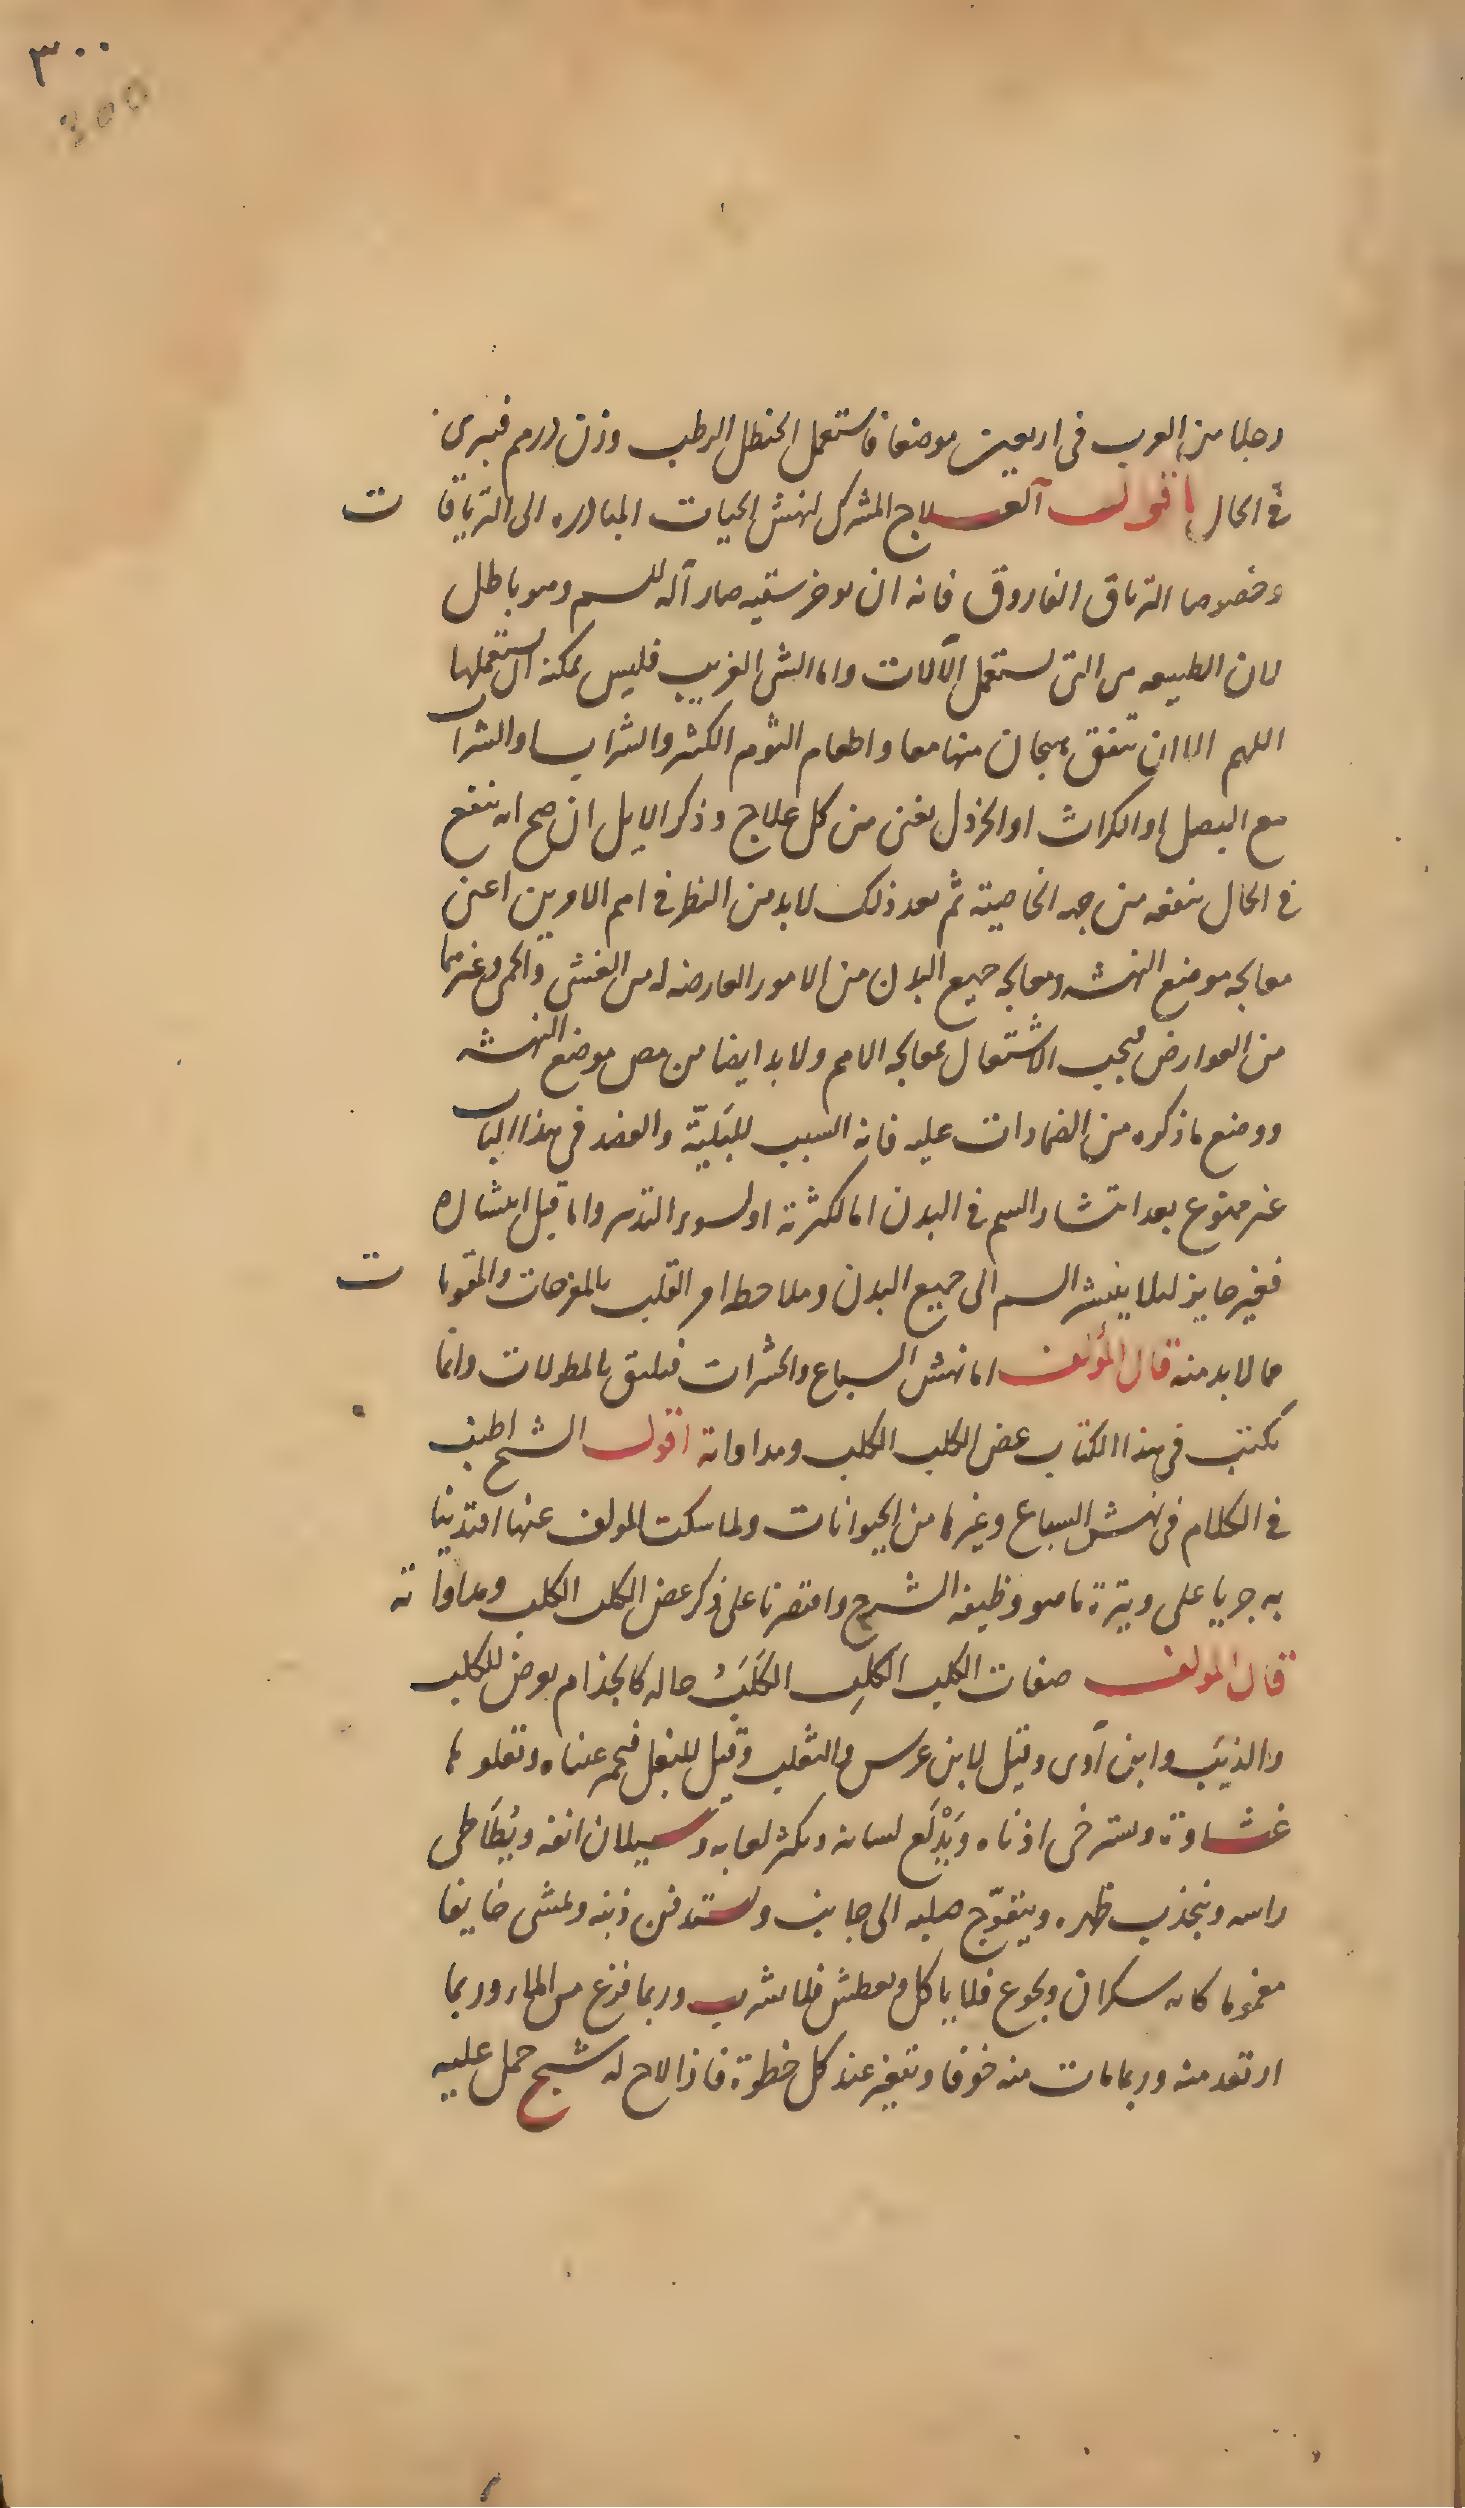 ٣٠٠
300
رجلا من العرب فى اربعين موضعا فاستعمل الحنظل الرطب وزن درهم فبرى
فى الحال اقول العلاج المشترك لنهش الحيات المبادره الى الترياقات
وخصوصا الترياق الفاروق فانه ان يوخر سقيه صار آله للسم وهو باطل
لان الطبيعه هى التى تستعمل الآلات واما الشى الغريب فليس يمكنه ان يستعملها
اللهم الا ان تتفق هيجان منها معا واطعام الثوم الكثير والشراب او الشراب
مع البصل او الكراث او الخردل يغنى من كل علاج وذكر الايل ان صح انه ينفع
فى الحال ينفعه من جهه الخاصية ثم بعد ذلك لا بد من النظر فى اهم الامرين اعنى
معالجه موضع النهشه ومعالجه جميع البدن من الامور العارضه له من الغشى والحمى وغيرهما
من العوارض فيجب الاشتغال بمعالجه الاهم ولا بد ايضا من مص موضع النهشه
ووضع ما ذكره من الضمادات عليه فانه السبب للبَليّة والفصد فى هذا الباب
غير ممنوع بعد انتشار السم فى البدن اما لكثرته او لسوء التدبير واما قبل انتشاره
فغير جايز لئلا ينتشر السم الى جميع البدن وملاحظه امر القلب بالمفرحات والمقويات
مما لا بد منه قال المؤلف اما نهش السباع والحشرات فيليق بالمطولات وانما
نكتب فى هذا الكتاب عض الكلب الكلب ومداواته اقول الشيخ اطنب
فى الكلام فى نهش السباع وغيرها من الحيوانات ولما سكت المولف عنها اقتدينا
به جريا على وتيرة ما هو وظيفه الشرح واقتصرنا على ذكر عض الكلب الكلب ومداواته
قال المولف صفات الكلب الكَلِب الكَلَبُ حاله كالجذام يعرض للكلب
والذيب وابن آوى وقيل لابن عرس والثعلب وقيل للبغل فيحمر عيناه وتعلوها
غشاوة وتسترخى اذناه ويَدْلَع لسانه ويكثر لعابه وسيلان انفه ويُطَاطى
راسه وينجذب ظهره ويتعوّج صلبه الى جانب ويستدفن ذنبه ويمشى خايفا
مغموما كانه سكران ويجوع فلا ياكل ويعطش فلا يشرب وربما فزع من الماء وربما
ارتعد منه وربما مات منه خوفا ويتعثر عند كل خطوة فاذا لاح له شبح حمل عليه